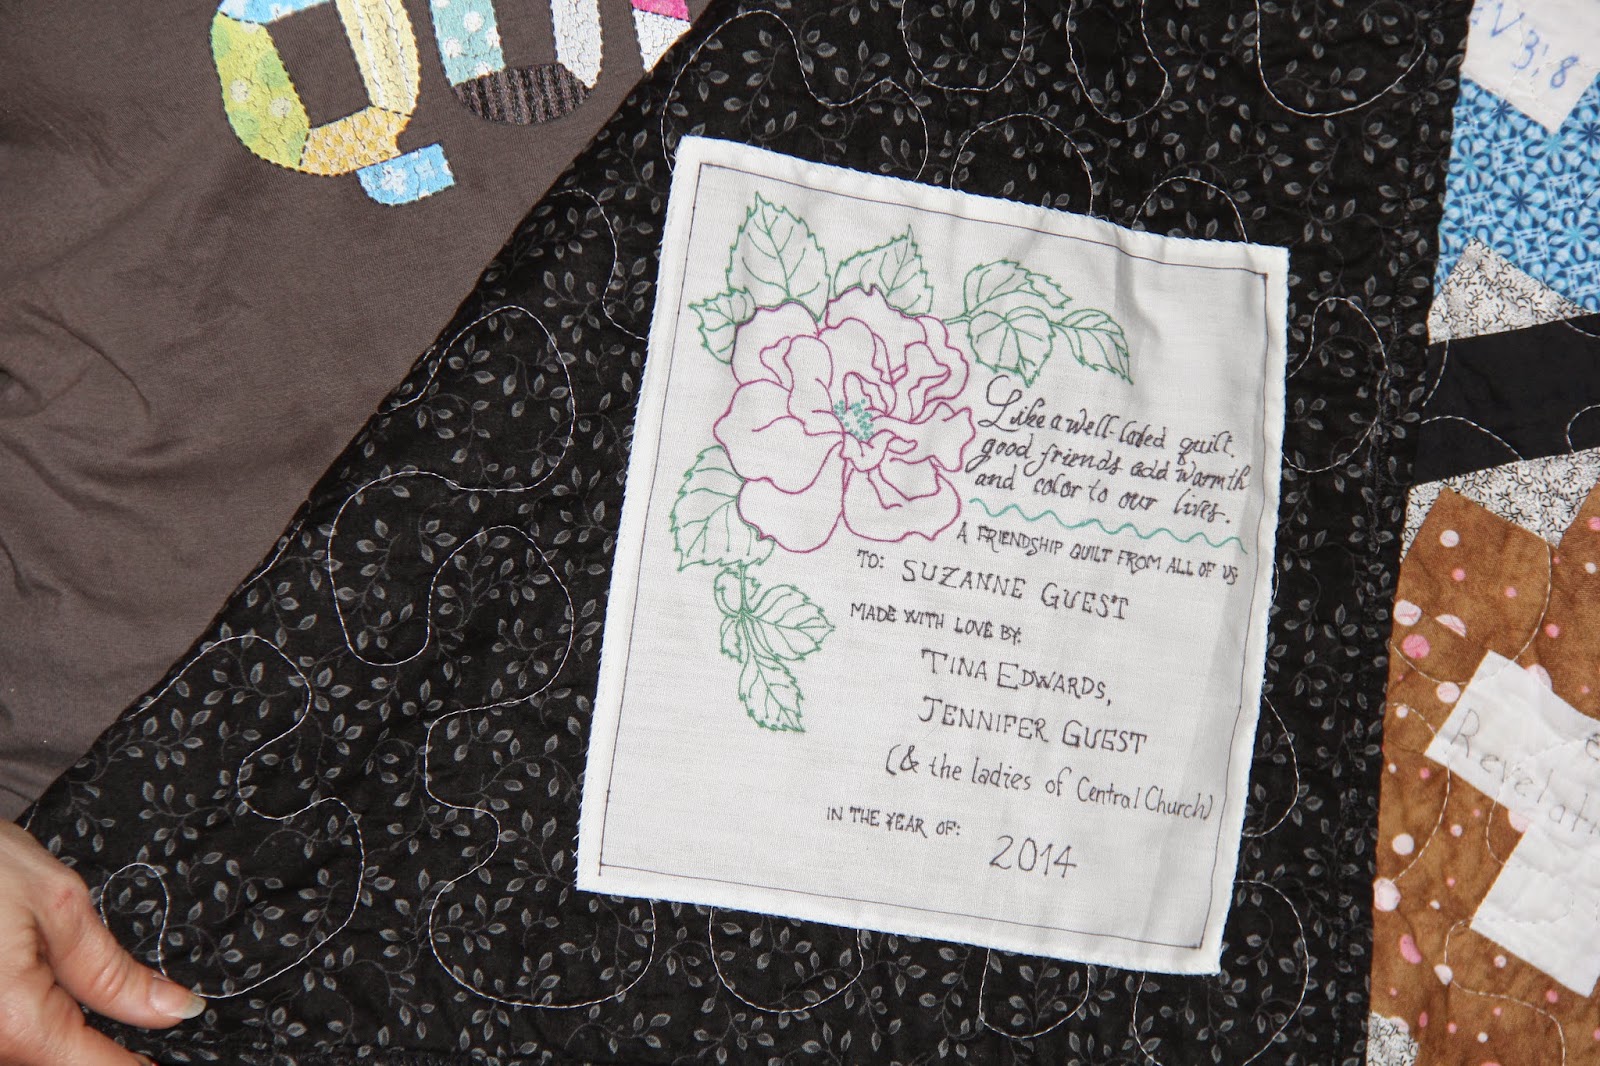 QU
V 3:8
Like a well-loved quilt,
good friends add warmth
and color to our lives.
A FRIENDSHIP QUILT FROM ALL OF US
TO: SUZANNE GUEST
MADE WITH LOVE BY:
TINA EDWARDS,
JENNIFER GUEST
(& the ladies of Central Church)
IN THE YEAR OF:
2014
Revelati